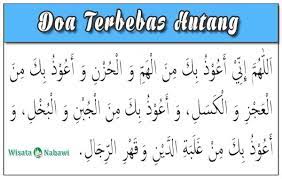 Doa Terbebas Hutang
اَللّٰهُمَّ إِنِّيْ أَعُوْذُ بِكَ مِنَ الْهَمِّ وَ الْحُزْنِ وَ أَعُوْذُ بِكَ مِنَ
الْعَجْزِ وَ الْكَسَلِ، وَ أَعُوْذُ بِكَ مِنَ الْجُبْنِ وَ الْبُخْلِ، وَ
أَعُوْذُ بِكَ مِنْ غَلَبَةِ الدَّيْنِ وَ قَهْرِ الرِّجَالِ.
Wisata Nabawi